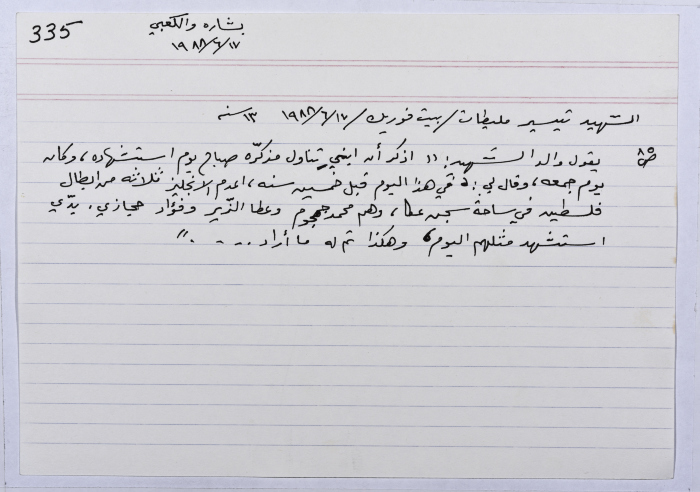 335
بشاره والكعبي
١٩٨٨/٦/١٧
الشهيد تيسير مليطات / بيت فوريك / ١٩٨٨/٦/١٧ ١٣ سنه
ص ٨٥
يقول والد الشهيد: "اذكر أن ابني تناول مذكّره صباح يوم استشهاده، وكان
يوم جمعه، وقال لي: في هذا اليوم قبل خمسين سنه، اعدم الانجليز ثلاثه من ابطال
فلسطين في ساحة سجن عكا، وهم محمد جمجوم وعطا الزّير وفؤاد حجازي. بدّي
استشهد مثلهم اليوم، وهكذا تم له ما أراد...."